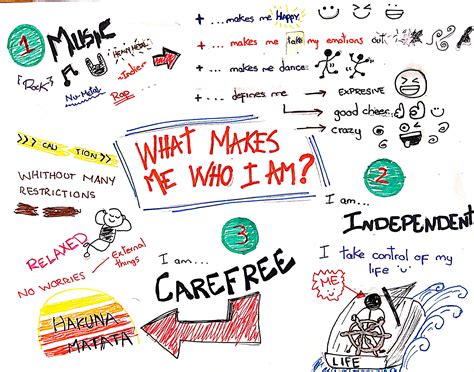 1 MUSIC
[Rock]
HEAVY METAL
Indie
Nu-Metal
Rap...
+ ...makes me HAPPY
+ ...makes me take my emotions out
+ ...makes me dance.
+ ...defines me
EXPRESIVE
good cheer
crazy
WHAT MAKES
ME WHO I AM?
2
I am...
INDEPENDENT
I take control of my
life
ME
LIFE
3
I am...
CAREFREE
CAUTION
WHITHOUT MANY
RESTRICTIONS
RELAXED
NO WORRIES
External
things
HAKUNA
MATATA